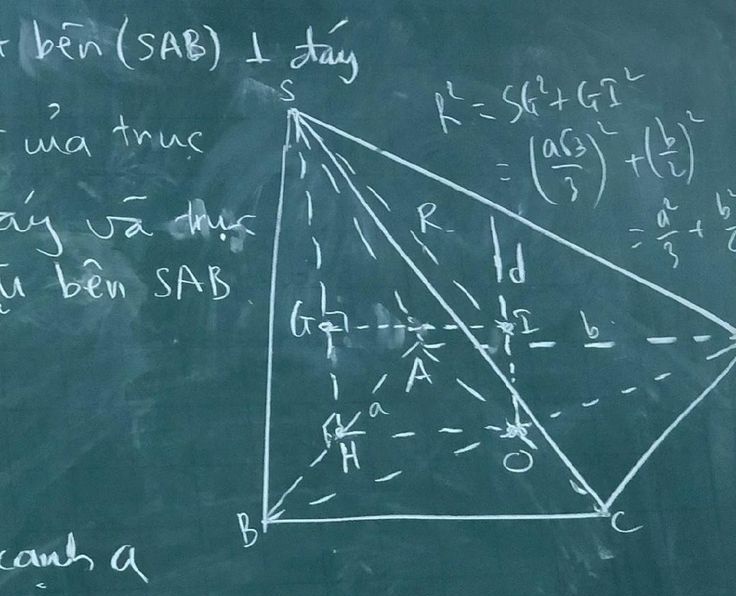 bên (SAB) ⊥ đáy
ủa trục
áy và trục
bên SAB
cạnh a
R² = SG² + GI²
= (a√3/3)² + (b/2)²
= a²/3 + b²
S
R
d
G
I
b
A
a
H
O
B
C